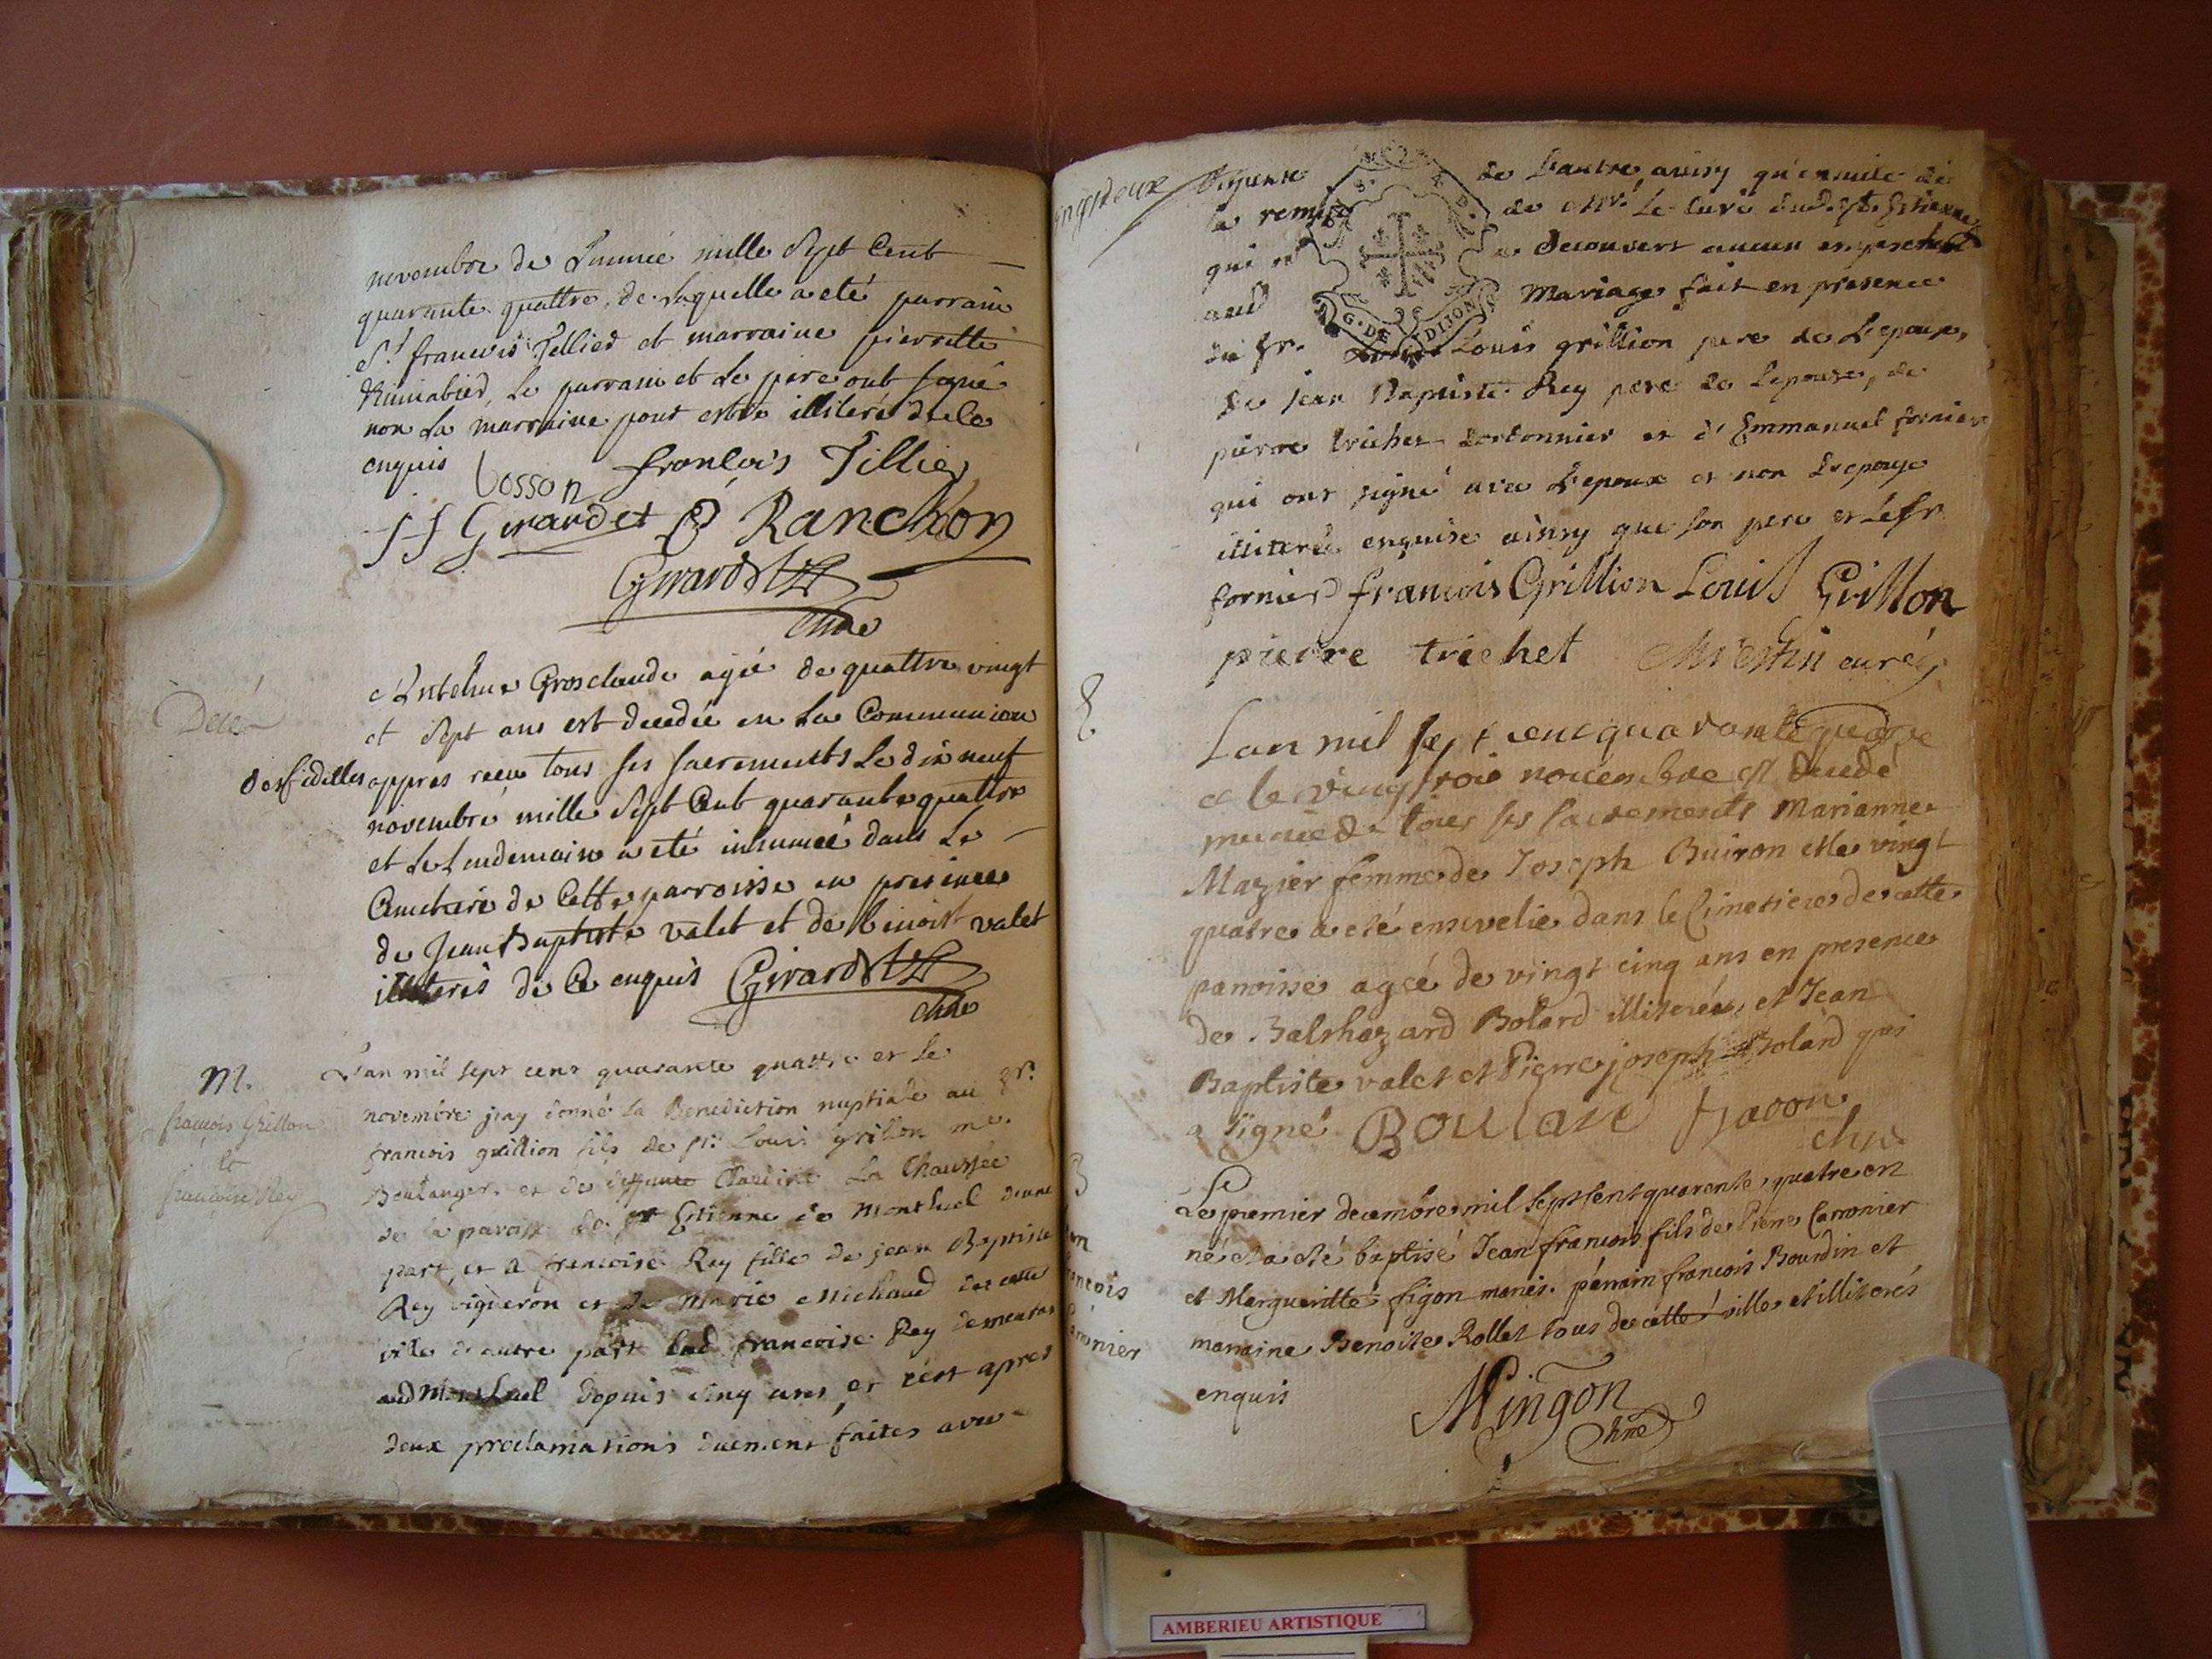 novembre de L'année mille Sept Cent
quarante quattre, de Laquelle a eté parrain
Sr. francois Tellier et marraine pierrette
Le parrain et Le pere ont signé
non La marraine pour estre illiteré de ce
enquis
Vosson françois Tillier
JJ Girardet P Ranchon
Girardet
chne
Decé
Antelme Grosclaude agée de quattre vingt
et Sept ans est decedée en La Communion
des fidelles appres receu tous ses sacrements Le dix neuf
novembre mille Sept Cent quarante quattre
et Le Lendemain a eté inhumée dans Le
Cimetiere de Cette parroisse en presence
de Jean Baptiste valet et de Benoist valet
illiterés de Ce enquis Girardet
chne
M.
francois Grillon
et
francoise Rey
L'an mil sept cent quarante quattre et le
novembre j'ay donné la Benediction nuptiale au sr.
francois grillion fils de sr. Louis grillon me.
Boulanger et de deffunte Claudine La Chaussée
de la paroisse de st Estienne de Montluel d'une
part, et a francoise Rey fille de jean Baptiste
Rey vigneron et de Marie Michaud de cette
ville d'autre part lad. francoise Rey demeurant
aud Montluel depuis cinq ans, et c'est apres
deux proclamations duement faites avec
dispense de L'autre, ainsy qu'ensuite de
la remise de Mr. Le curé dud. st. Estienne
qui n' a decouvert aucun empeschemt
aud Mariage fait en présence
du sr. Louis grillion pere de L'epoux,
De jean Baptiste Rey pere de L'epouse, de
pierre trichet cordonnier et d'Emmanuel fornier
qui ont signé avec L'epoux et non L'epouse
illiterée enquise ainsy que son pere et Le sr
fornier francois Grillion Louis Grillon
pierre trichet Chrestin curé
Lan mil sept cent quarante quatre
et le vingt trois novembre est decedé
munie de tous ses sacrements Marianne
Mazier femme de Joseph Buiron et le vingt
quatre a eté ensevelie dans le Cimetiere de cette
paroisse agée de vingt cinq ans en presence
de Balthazard Bolard illiterée, et Jean
Baptiste valet et Pierre joseph Bolard qui
a signé BOULARD
chne
on
ancois
Caronier
Le premier decembre mil sept cent quarante quatre est
né et a été baptisé Jean francois fils de Pierre Carronier
et Marguerite figon mariés. parrain francois Bourdin et
marraine Benoite Rollet tous de cette ville et illiterés
enquis
Mingon
chne
G. DE DIJON
AMBERIEU ARTISTIQUE